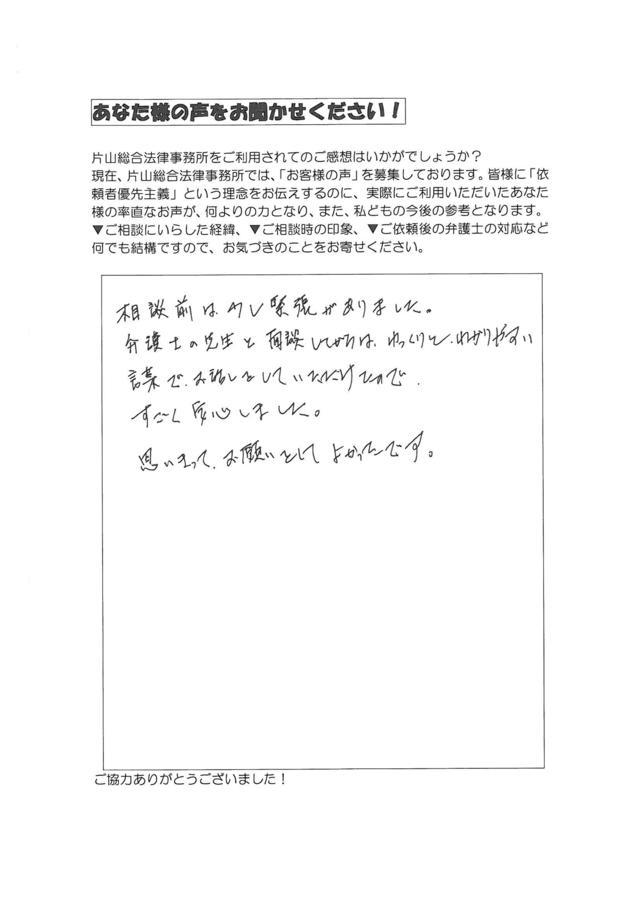 あなた様の声をお聞かせください！
片山総合法律事務所をご利用されてのご感想はいかがでしょうか？
現在、片山総合法律事務所では、「お客様の声」を募集しております。皆様に「依
頼者優先主義」という理念をお伝えするのに、実際にご利用いただいたあなた
様の率直なお声が、何よりの力となり、また、私どもの今後の参考となります。
▼ご相談にいらした経緯、▼ご相談時の印象、▼ご依頼後の弁護士の対応など
何でも結構ですので、お気づきのことをお寄せください。
相談前は、少し緊張がありました。
弁護士の先生と面談してからは、ゆっくりと、わかりやすい
言葉で、お話しをしていただけたので、
すごく安心しました。
思いきって、お願いをしてよかったです。
ご協力ありがとうございました！